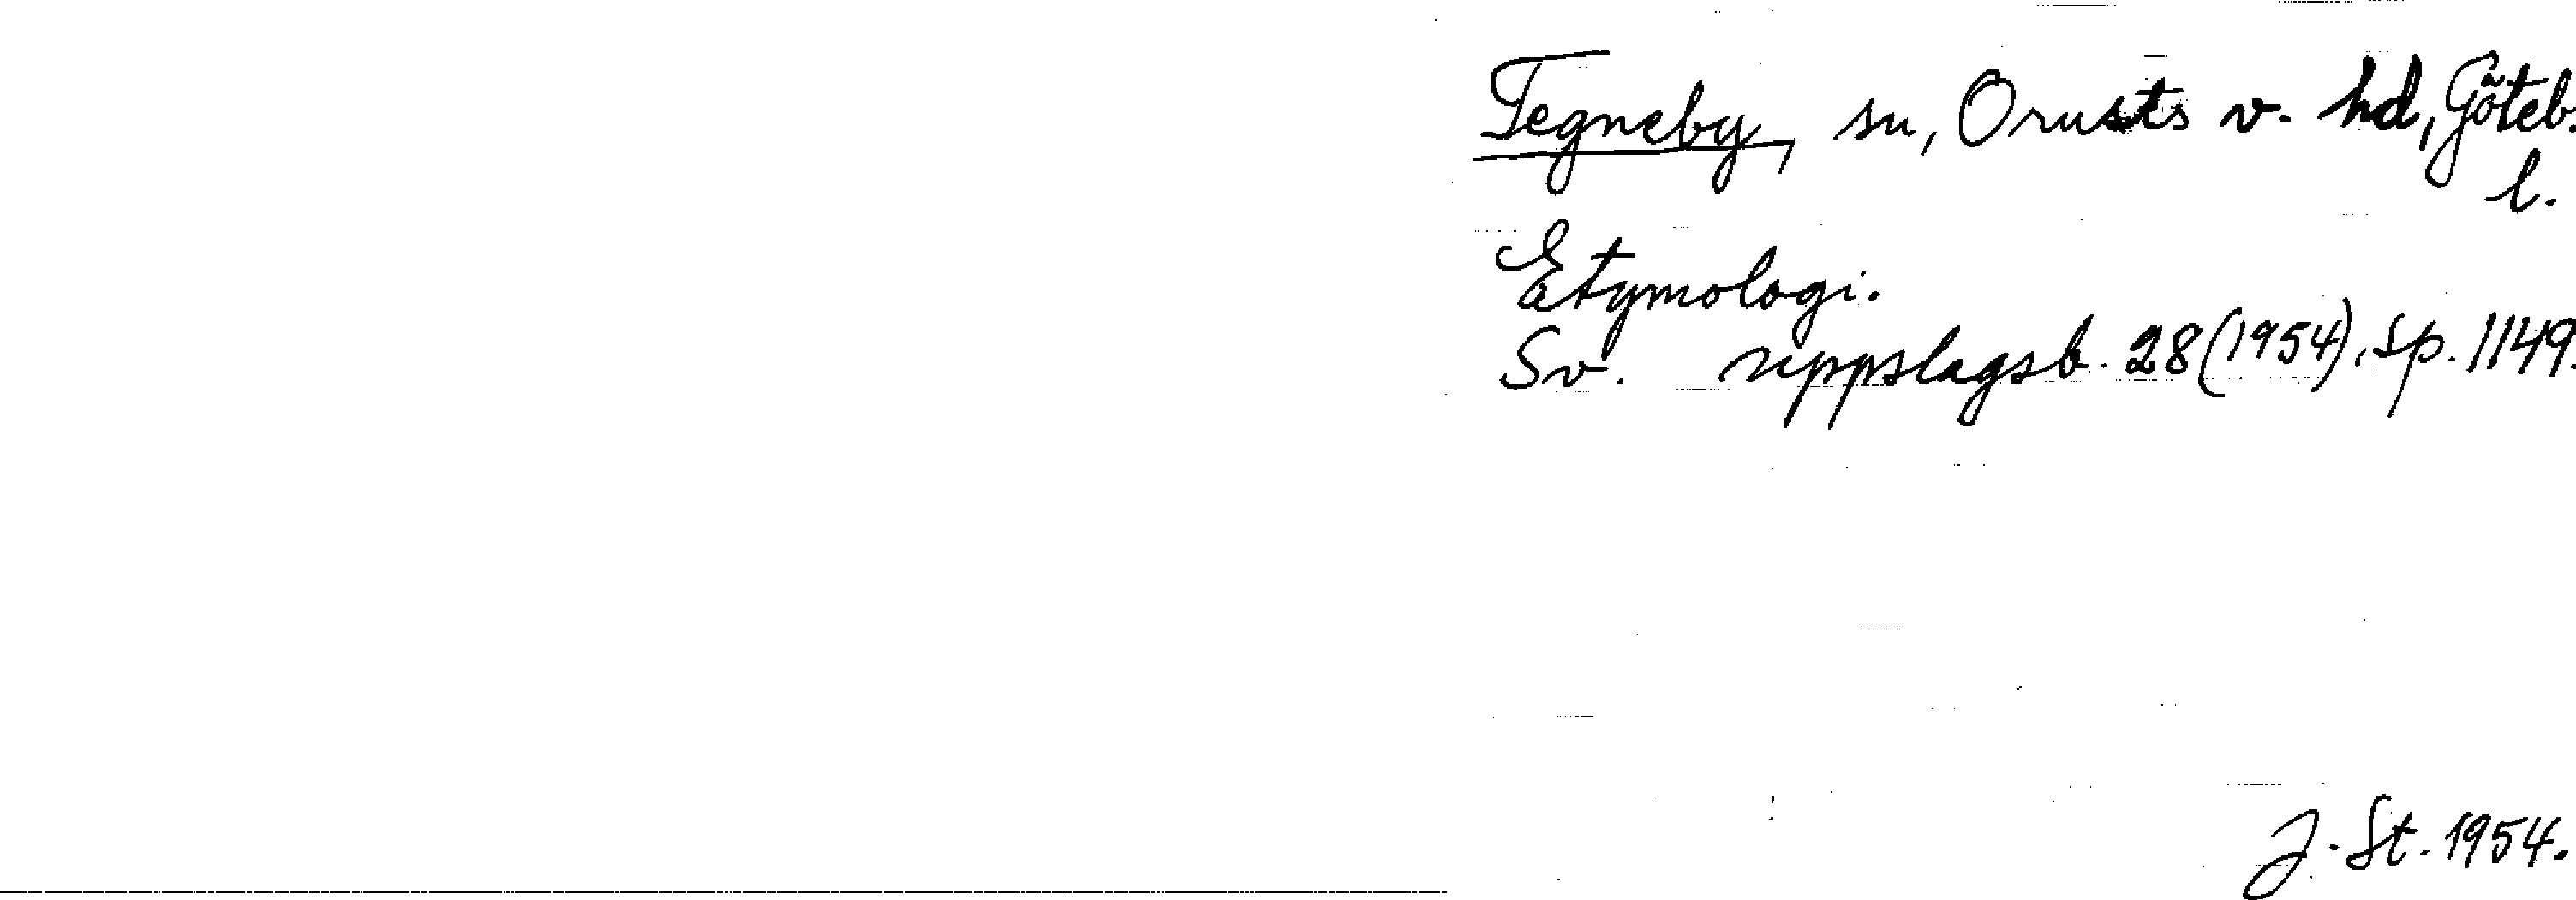 Tegneby, sn, Orusts v. hd, Göteb.
l.
Etymologi.
Sv. uppslagsb. 28 (1954), sp. 1149.
J. St. 1954.